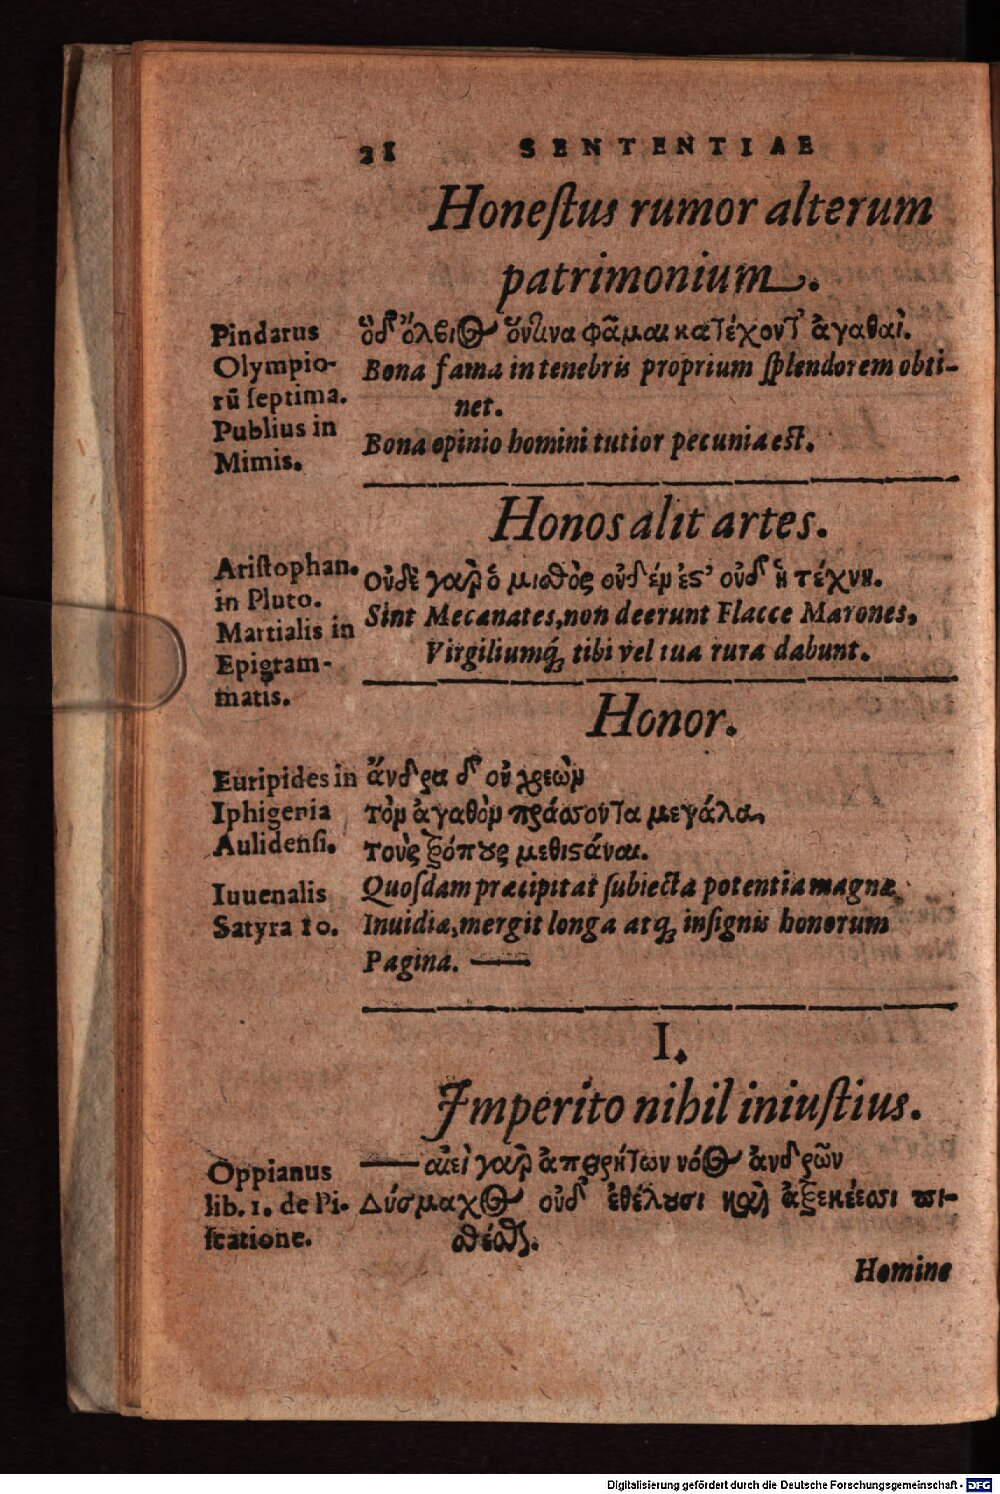 21 SENTENTIAE
Honestus rumor alterum
patrimonium.
Pindarus
Olympio-
rũ septima.
Publius in
Mimis.
ὃδ' ὄλβιος ὅντινα φᾶμαι κατέχοντ' ἀγαθαὶ.
Bona fama in tenebris proprium splendorem obti-
net.
Bona opinio homini tutior pecunia est.
Honos alit artes.
Aristophan.
in Pluto.
Martialis in
Epigram-
matis.
Οὐδὲ γὰρ ὁ μισθὸς οὐδέν ἐστ' οὐδ' ἡ τέχνη.
Sint Mecænates, non deerunt Flacce Marones,
Virgiliumq; tibi vel tua rura dabunt.
Honor.
Euripides in
Iphigenia
Aulidensi.
ἄνδρα δ' οὐ χρεὼν
τὸν ἀγαθὸν πράσσοντα μεγάλα,
τοὺς τρόπους μεθιστάναι.
Iuuenalis
Satyra 10.
Quosdam præcipitat subiecta potentia magnæ
Inuidiæ, mergit longa atq; insignis honorum
Pagina. ——
I.
Imperito nihil iniustius.
Oppianus
lib. 1. de Pi-
scatione.
—— αἰεὶ γὰρ ἀπειρήτων νόος ἀνδρῶν
Δύσμαχος οὐδ' ἐθέλουσι καὶ ἀτρεκέεσσι πι-
θέσθαι.
Homine
Digitalisierung gefördert durch die Deutsche Forschungsgemeinschaft - DFG